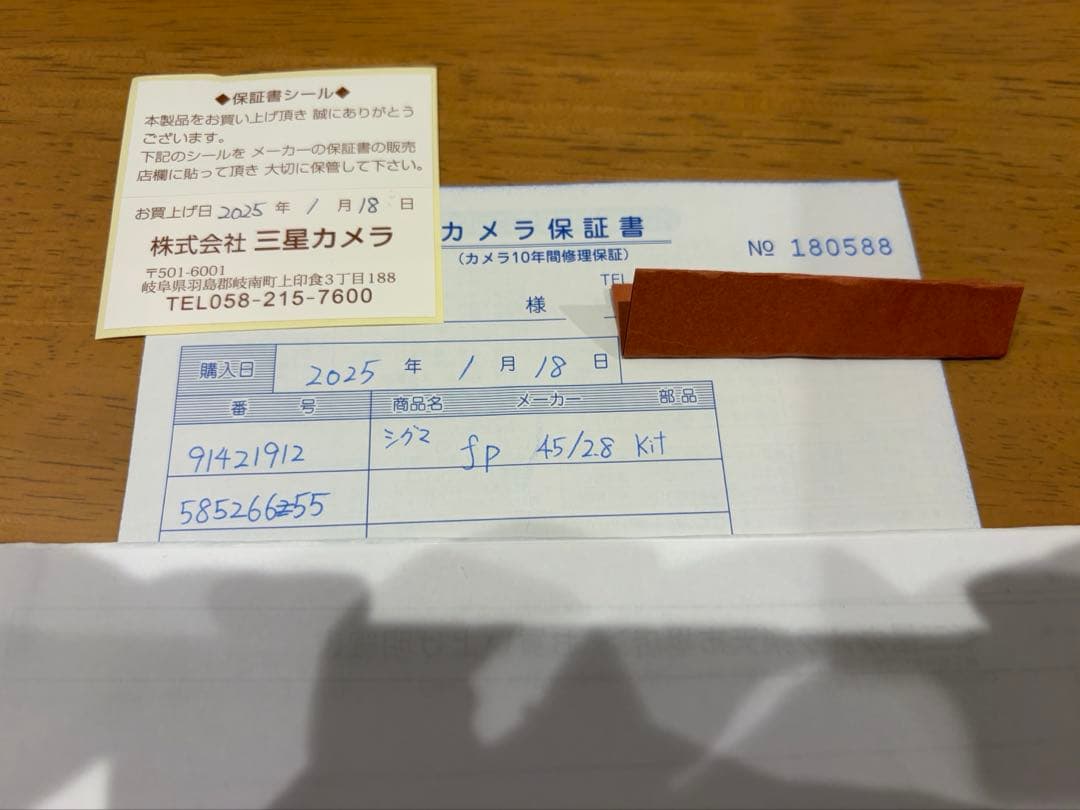 ◆保証書シール◆
本製品をお買い上げ頂き 誠にありがとう
ございます。
下記のシールを メーカーの保証書の販売
店欄に貼って頂き 大切に保管して下さい。
お買上げ日 2025 年 1 月 18 日
株式会社 三星カメラ
〒501-6001
岐阜県羽島郡岐南町上印食3丁目188
TEL058-215-7600
カメラ保証書
(カメラ10年間修理保証)
№ 180588
TEL
様
購入日 2025 年 1 月 18 日
番号 商品名 メーカー 部品
91421912 シグマ fp 45/2.8 Kit
585266255